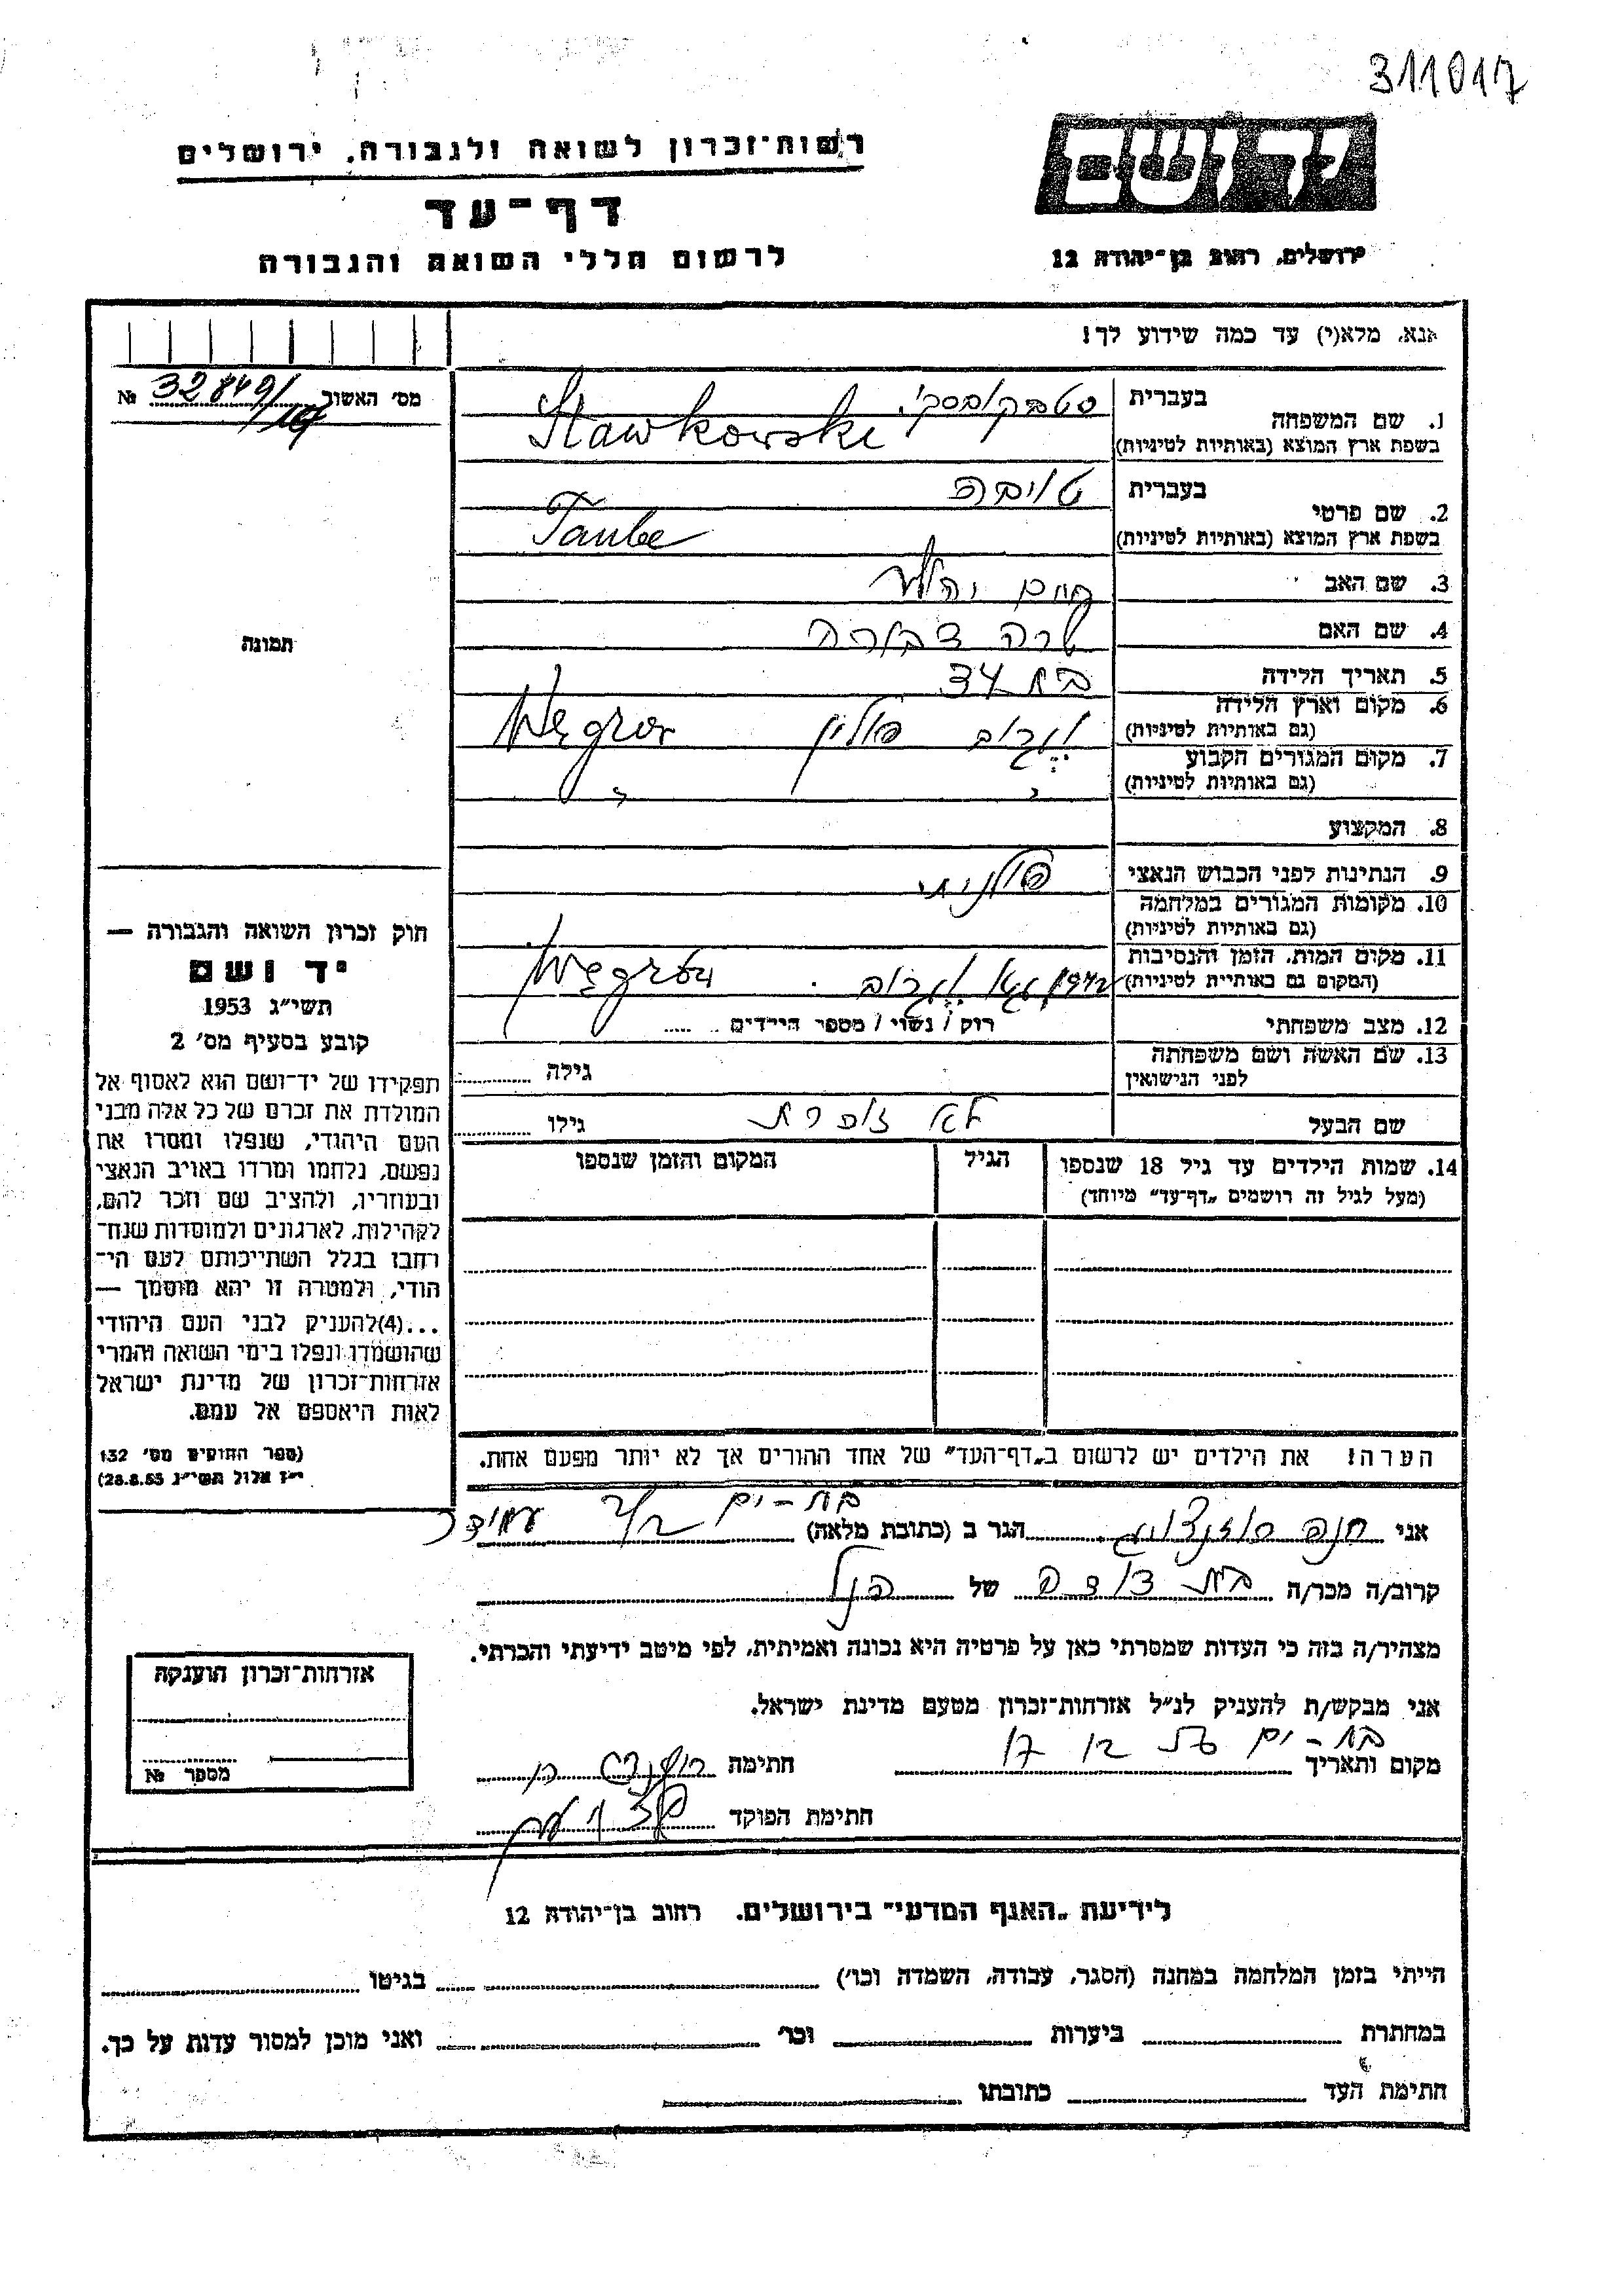 311017
יד ושם
רשות־זכרון לשואה ולגבורה, ירושלים
ירושלים, רחוב בן־יהודה 12
דף־עד
לרשום חללי השואה והגבורה
אנא, מלא(י) עד כמה שידוע לך!
מס׳ האשור 32849/ №
1. שם המשפחה
בעברית סטבקובסקי
בשפת ארץ המוצא (באותיות לטיניות) Stawkowski
2. שם פרטי
בעברית טויבה
בשפת ארץ המוצא (באותיות לטיניות) Taube
3. שם האב חיים
4. שם האם שרה דבורה
5. תאריך הלידה בת 34
6. מקום וארץ הלידה
(גם באותיות לטיניות) פולין Węgrow
7. מקום המגורים הקבוע
(גם באותיות לטיניות)
8. המקצוע
9. הנתינות לפני הכבוש הנאצי פולנית
10. מקומות המגורים במלחמה
(גם באותיות לטיניות)
11. מקום המות, הזמן והנסיבות
(המקום גם באותיית לטיניות) Węgrów
12. מצב משפחתי רוק / נשוי / מספר הילדים
13. שם האשה ושם משפחתה
לפני הנישואין גילה
שם הבעל לא זוכרת גילו
14. שמות הילדים עד גיל 18 שנספו הגיל המקום והזמן שנספו
(מעל לגיל זה רושמים „דף־עד״ מיוחד)
הערה! את הילדים יש לרשום ב„דף־העד״ של אחד ההורים אך לא יותר מפעם אחת.
תמונה
חוק זכרון השואה והגבורה —
יד ושם
תשי״ג 1953
קובע בסעיף מס׳ 2
תפקידו של יד־ושם הוא לאסוף אל
המולדת את זכרם של כל אלה מבני
העם היהודי, שנפלו ומסרו את
נפשם, נלחמו ומרדו באויב הנאצי
ובעוזריו, ולהציב שם וזכר להם,
לקהילות, לארגונים ולמוסדות שנח־
רחבו בגלל השתייכותם לעם הי־
הודי, ולמטרה זו יהא מוסמך —
...(4)להעניק לבני העם היהודי
שהושמדו ונפלו בימי השואה והמרי
אזרחות־זכרון של מדינת ישראל
לאות היאספם אל עמם.
(ספר החוקים מס׳ 132
י״ז אלול תשי״ג 28.8.53)
אני חנה הגר ב (כתובת מלאה) בת-ים עמידר
קרוב/ה מכר/ה בת דודה של הנ״ל
מצהיר/ה בזה כי העדות שמסרתי כאן על פרטיה היא נכונה ואמיתית, לפי מיטב ידיעתי והכרתי.
אני מבקש/ת להעניק לנ״ל אזרחות־זכרון מטעם מדינת ישראל.
מקום ותאריך בת-ים חתימה
חתימת הפוקד
אזרחות־זכרון הוענקה
מספר №
לידיעת „האגף המדעי״ בירושלים. רחוב בן־יהודה 12
הייתי בזמן המלחמה במחנה (הסגר, עבודה, השמדה וכו׳) בגיטו
במחתרת ביערות וכו׳ ואני מוכן למסור עדות על כך.
חתימת העד כתובתו